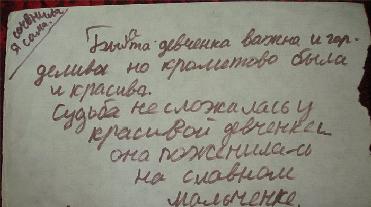 сочинила
я сама.
Была та девченка важна и гор-
делива но краметово была
и красива.
Судьба не сложалась у
красивой девченки
она поженилась
на славном
мальченке.